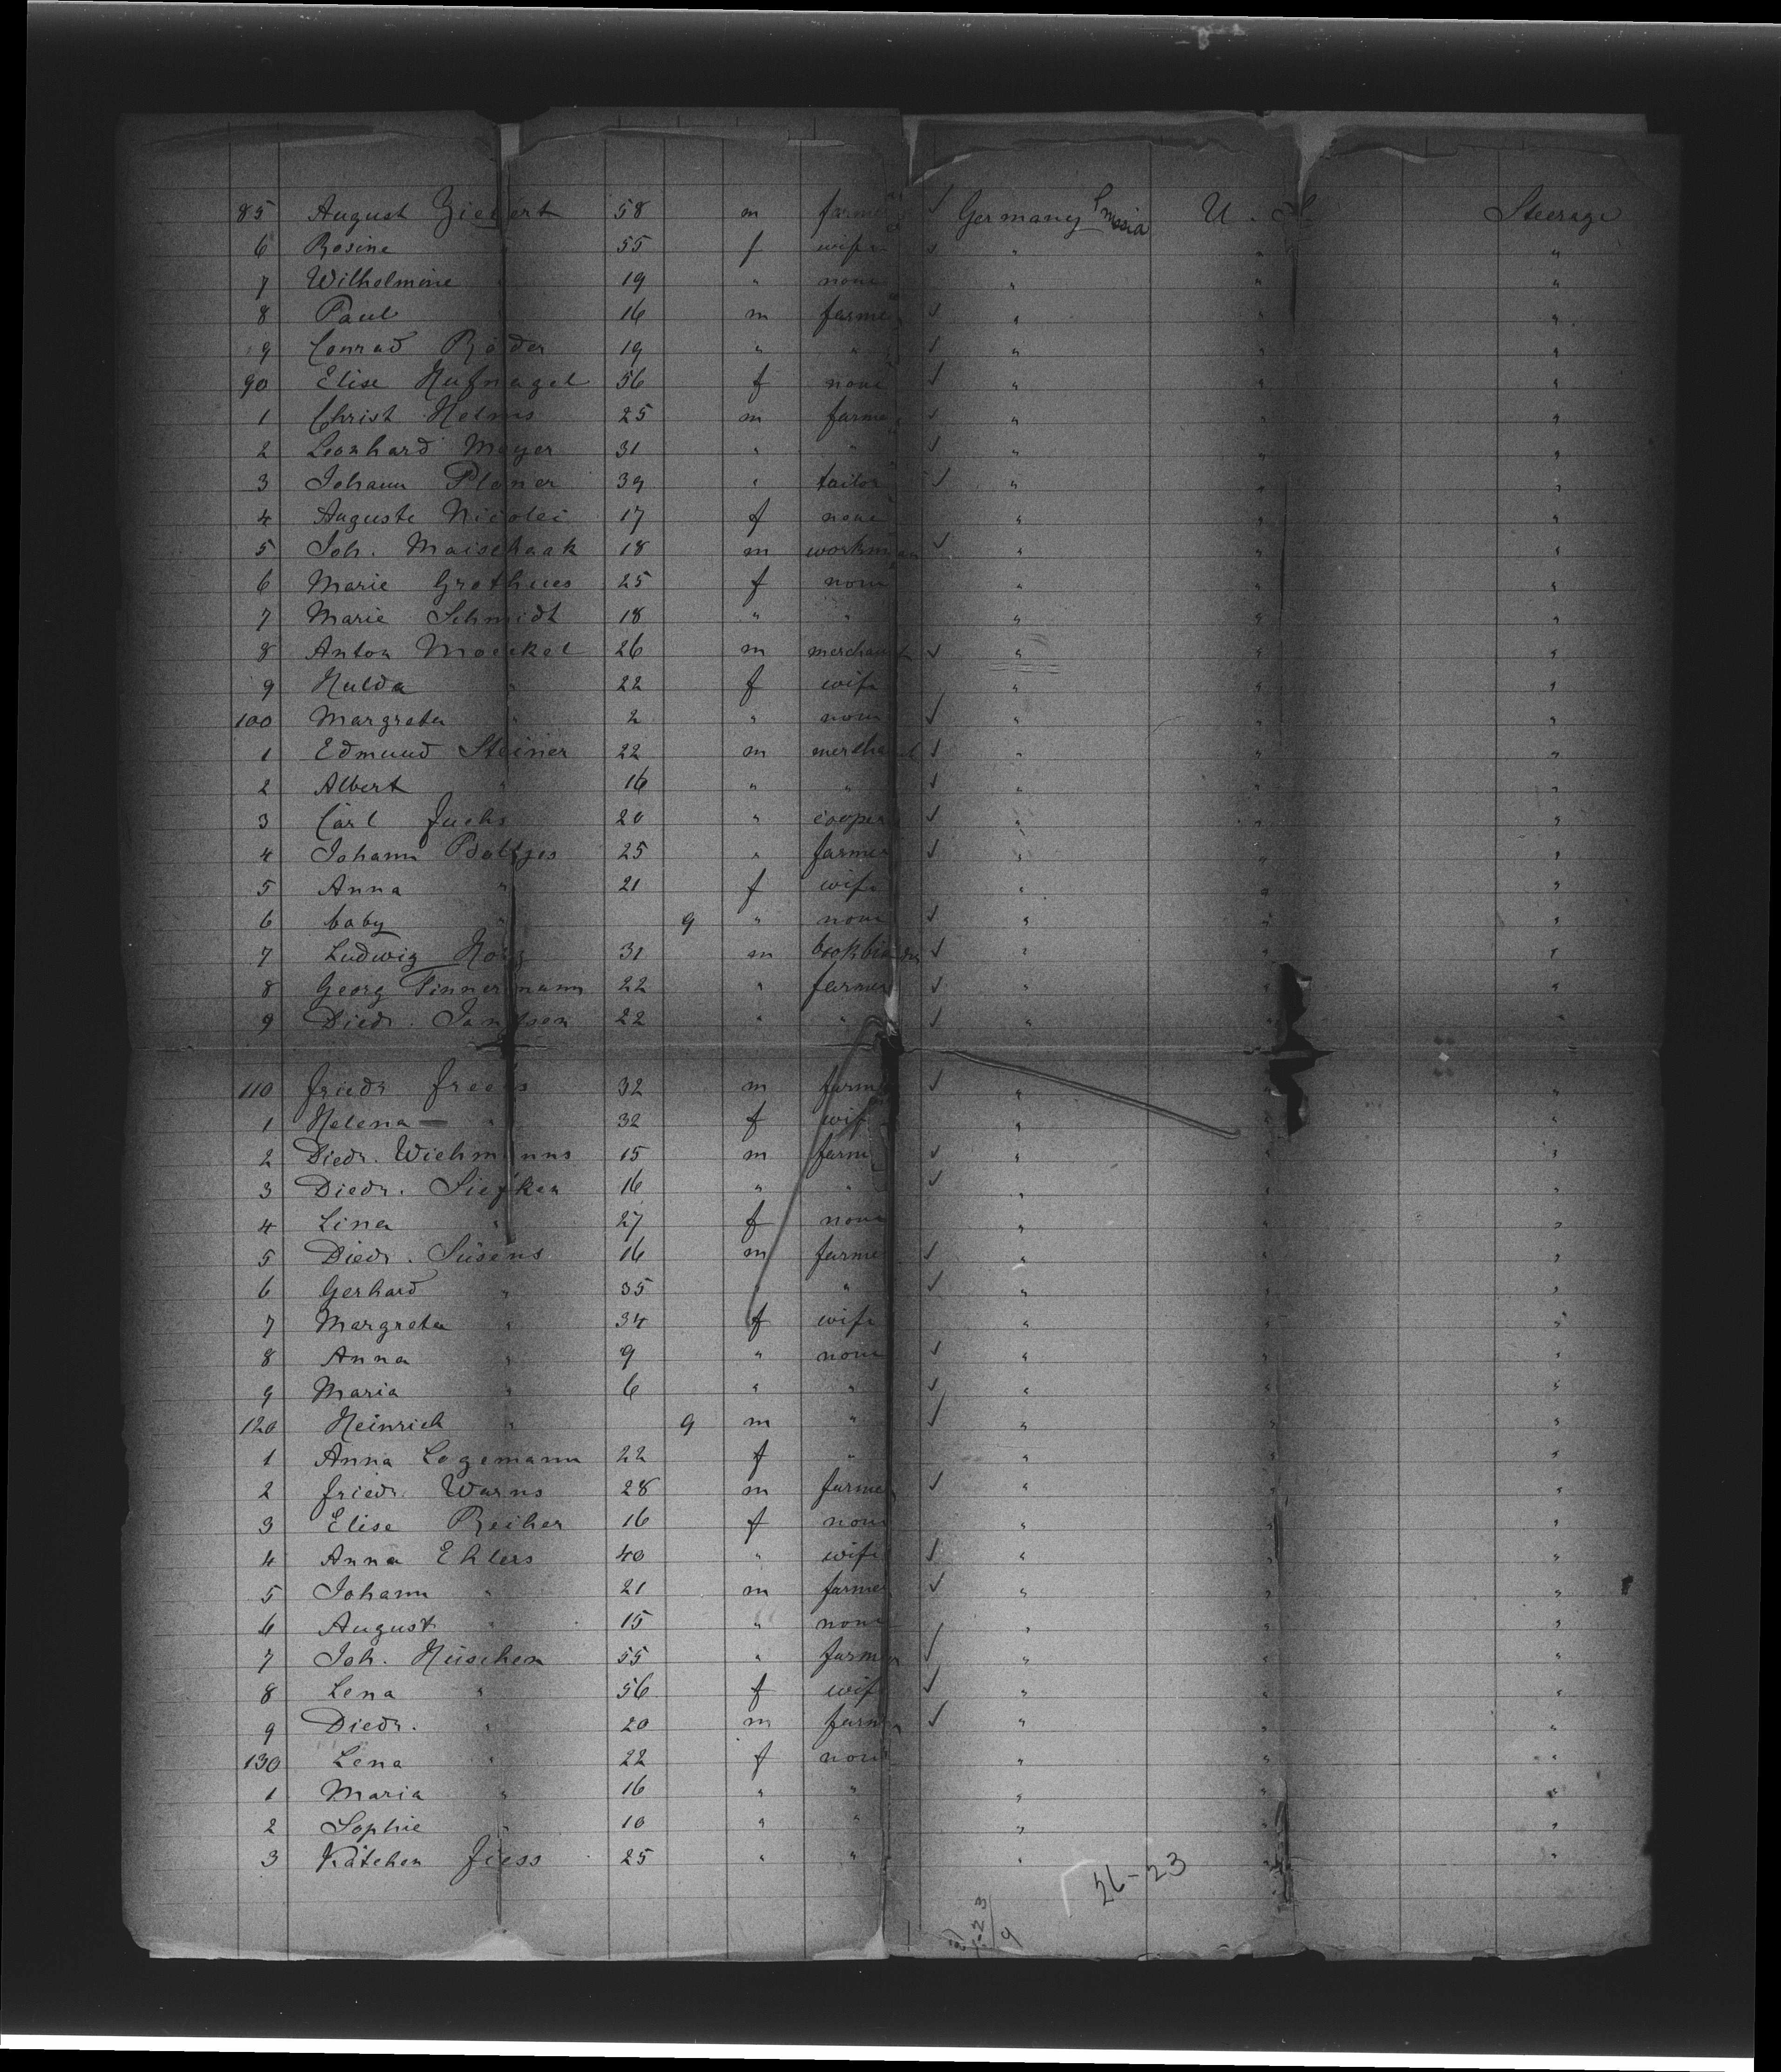 85 August Ziebert 58 m farmer ✓ Germany Prussia U. St. Steerage
6 Rosine 55 f wife ✓ " " "
7 Wilhelmine " 19 " none " " "
8 Paul 16 m farmer ✓ " " "
9 Conrad Röder 19 " " ✓ " " "
90 Elise Hufnagel 56 f none ✓ " " "
1 Christ Helms 25 m farmer ✓ " " "
2 Leonhard Mayer 31 " " ✓ " " "
3 Johann Ploner 39 " tailor ✓ " " "
4 Auguste Nicolei 17 f none " " "
5 Joh. Maischaak 18 m workman ✓ " " "
6 Marie Grothues 25 f none " " "
7 Marie Schmidt 18 " " " " "
8 Anton Moeckel 26 m merchant ✓ " " "
9 Hulda " 22 f wife " " "
100 Margreta " 2 " none ✓ " " "
1 Edmund Steiner 22 m merchant ✓ " " "
2 Albert " 16 " " ✓ " " "
3 Carl Fuchs 20 " cooper ✓ " " "
4 Johann Boltjes 25 " farmer ✓ " " "
5 Anna " 21 f wife " " "
6 baby " 9 " none ✓ " " "
7 Ludwig 31 m bookbinder ✓ " " "
8 Georg Tinnermann 22 " farmer ✓ " " "
9 Diedr. Janssen 22 " " ✓ " " "
110 Friedr. Freels 32 m farmer ✓ " " "
1 Helena — " 32 f wife " " "
2 Diedr. Wichmanns 15 m farmer ✓ " " "
3 Diedr. Siefken 16 " " ✓ " " "
4 Lina " 27 f none " " "
5 Diedr. Süsens 16 m farmer ✓ " " "
6 Gerhard " 35 " " ✓ " " "
7 Margreta " 34 f wife " " "
8 Anna " 9 " none ✓ " " "
9 Maria " 6 " " ✓ " " "
120 Heinrich " 9 m " ✓ " " "
1 Anna Logemann 22 f " " " "
2 Friedr. Warns 28 m farmer ✓ " " "
3 Elise Reiher 16 f none " " "
4 Anna Ehlers 40 " wife ✓ " " "
5 Johann " 21 m farmer ✓ " " "
6 August " 15 " none " " "
7 Joh. Hüschen 55 " farmer ✓ " " "
8 Lena " 56 f wife ✓ " " "
9 Diedr. " 20 m farmer ✓ " " "
130 Lena " 22 f none " " "
1 Maria " 16 " " " " "
2 Sophie " 10 " " " " "
3 Kätchen Fiess 25 " " " " "
26-23